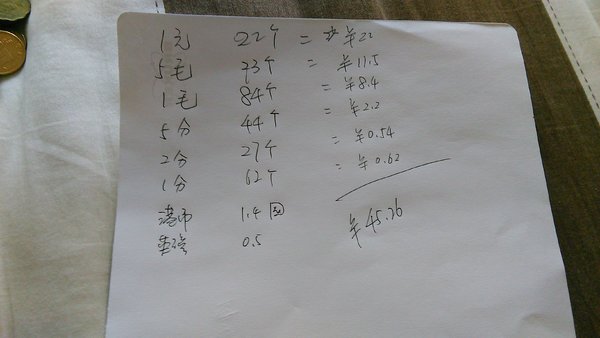 1元 22个 = ¥22
5毛 23个 = ¥11.5
1毛 84个 = ¥8.4
5分 44个 = ¥2.2
2分 27个 = ¥0.54
1分 62个 = ¥0.62
港币 1.4
0.5
¥45.26